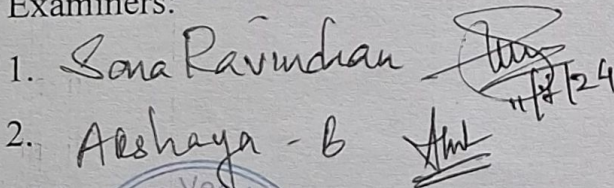 Examiners:
1. Sona Ravindran
11/7/24
2. Akshaya - B